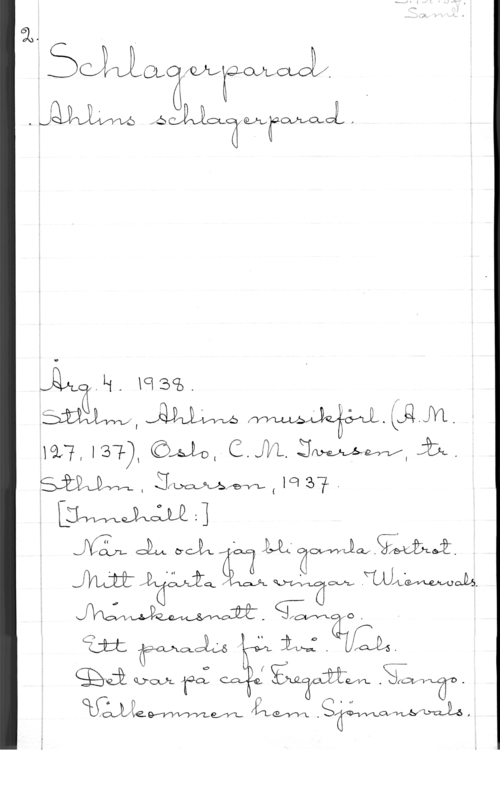 Saml.
2.
Schlagerparad.
Ahlins schlagerparad.
Årg. 4. 1938.
Sthlm, Ahlins musikförl. (A.M.
127, 137), Oslo, C. M. Iversen, tr.
Sthlm, Ivarsson, 1937.
[Innehåll:]
När du och jag bli gamla. Foxtrot.
Mitt hjärta har vingar. Wienervals.
Månskensnatt. Tango.
Ett paradis för två. Vals.
Det var på café Fregatten. Tango.
Välkommen hem. Sjömansvals.